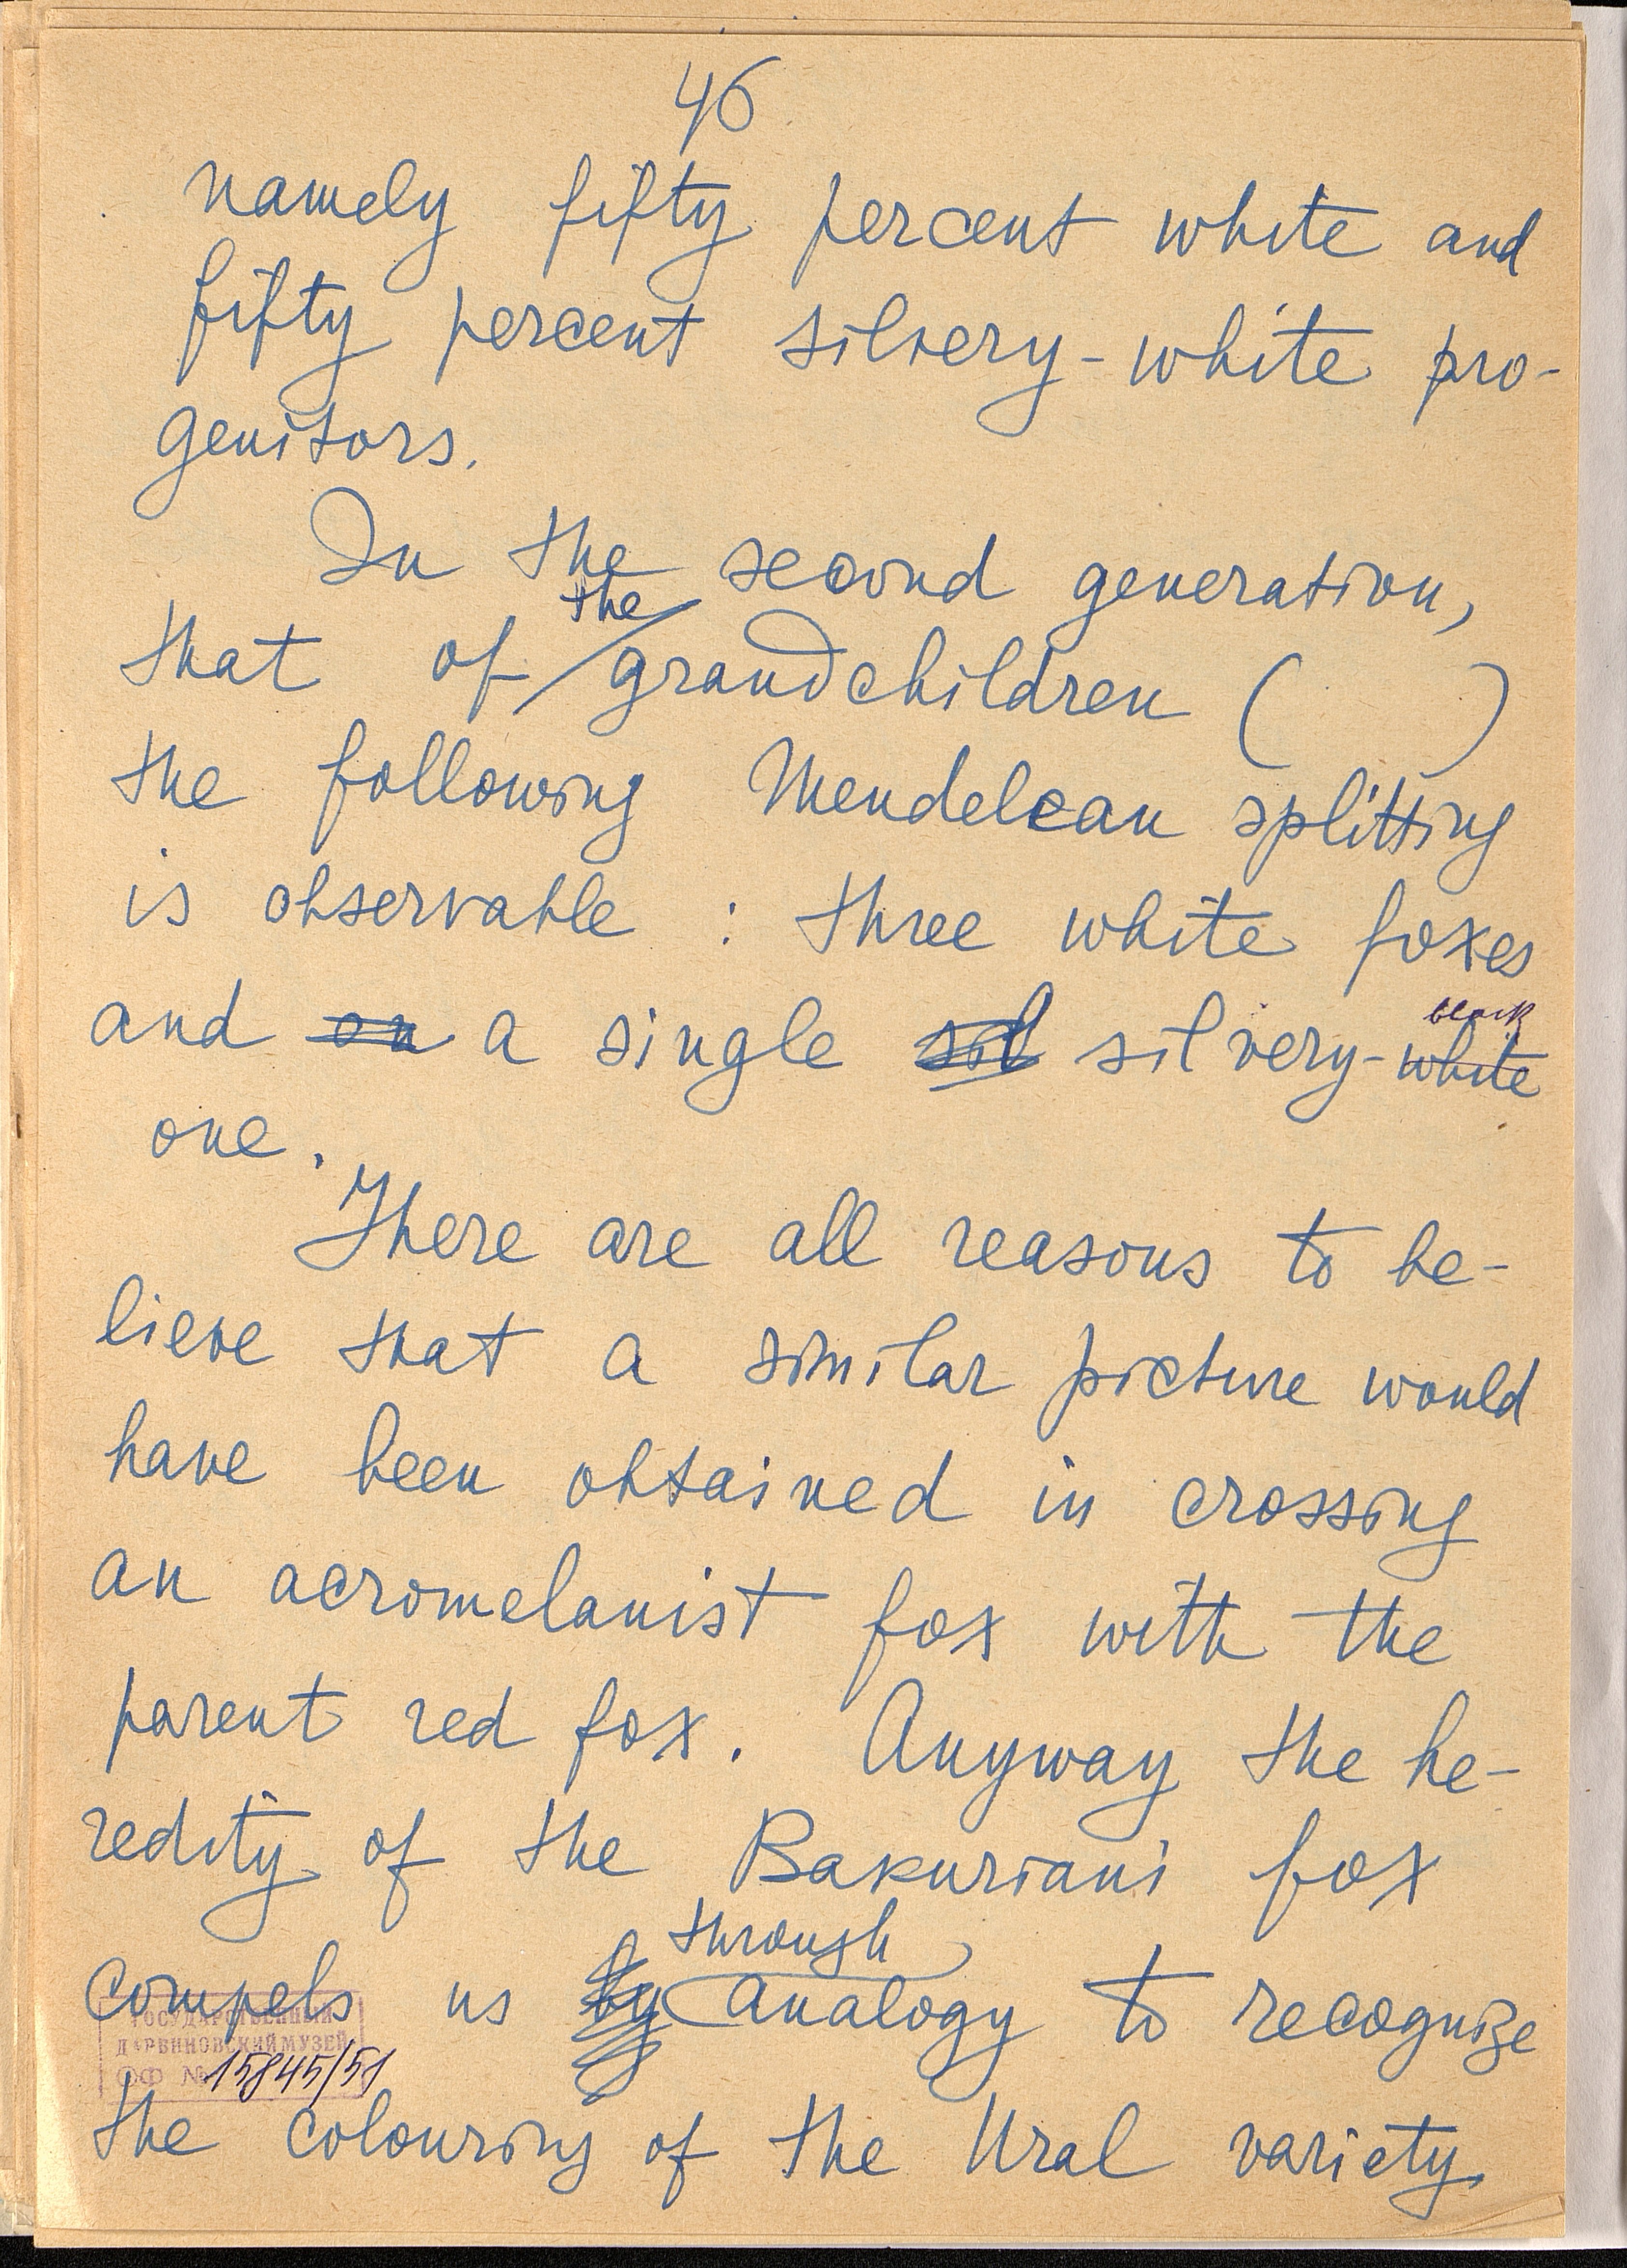 46
namely fifty percent white and
fifty percent silvery-white pro-
genitors.
In the second generation,
the
that of grandchildren ( )
the following Mendelean splitting
is observable : three white foxes
black
and on a single sil silvery-white
one.
There are all reasons to be-
lieve that a similar picture would
have been obtained in crossing
an acromelanist fox with the
parent red fox. Anyway the he-
redity of the Bakuriani fox
through
compels us by analogy to recognize
ГОСУДАРСТВЕННЫЙ
ДАРВИНОВСКИЙ МУЗЕЙ
ОФ № 15845/51
the colouring of the Ural variety